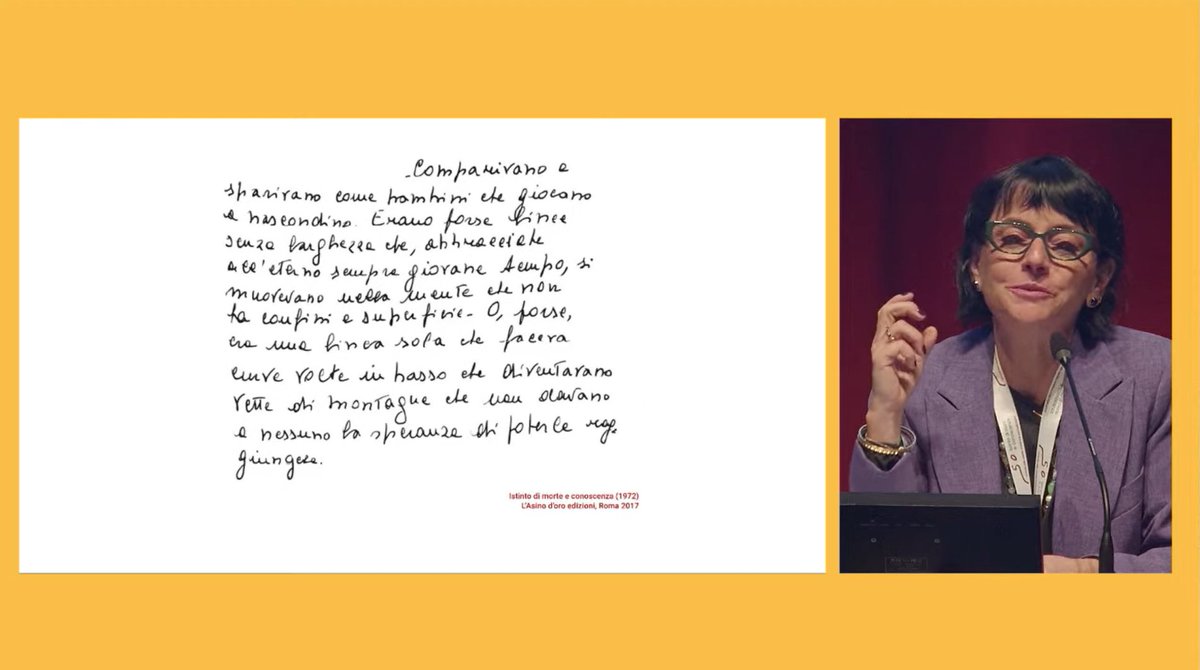 -Comparivano e
sparivano come bambini che giocano
a nascondino. Erano forse linee
senza larghezza che, abbracciate
all'eterno sempre giovane tempo, si
muovevano nella mente che non
ha confini e superficie- O, forse,
era una linea sola che faceva
curve volte in basso che diventavano
vette di montagne che non davano
a nessuno la speranza di poterle rag-
giungere.
Istinto di morte e conoscenza (1972)
L'Asino d'oro edizioni, Roma 2017
50